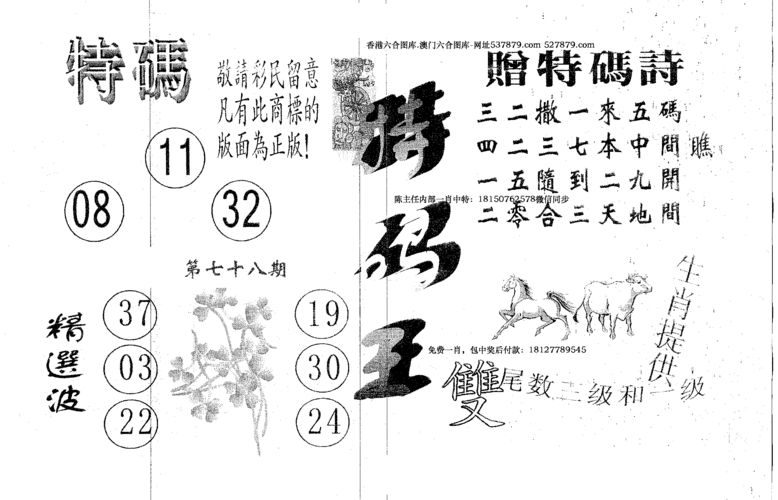 香港六合图库.澳门六合图库-网址537879.com 527879.com
特碼
敬請彩民留意
凡有此商標的
版面為正版!
11
08
32
第七十八期
精選波
37
03
22
19
30
24
特码王
贈特碼詩
三二撒一來五碼
四二三七本中間瞧
一五隨到二九開
陈主任内部一肖中特: 18150762578微信同步
二零合三天地間
生肖提供
免费一肖, 包中奖后付款: 18127789545
雙尾数二级和一级